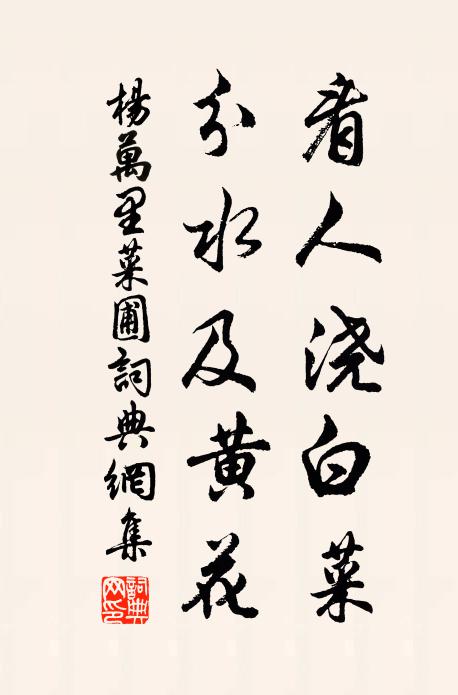 看人浇白菜
分水及黄花
楊萬里菜圃詞典網集
詞典網印